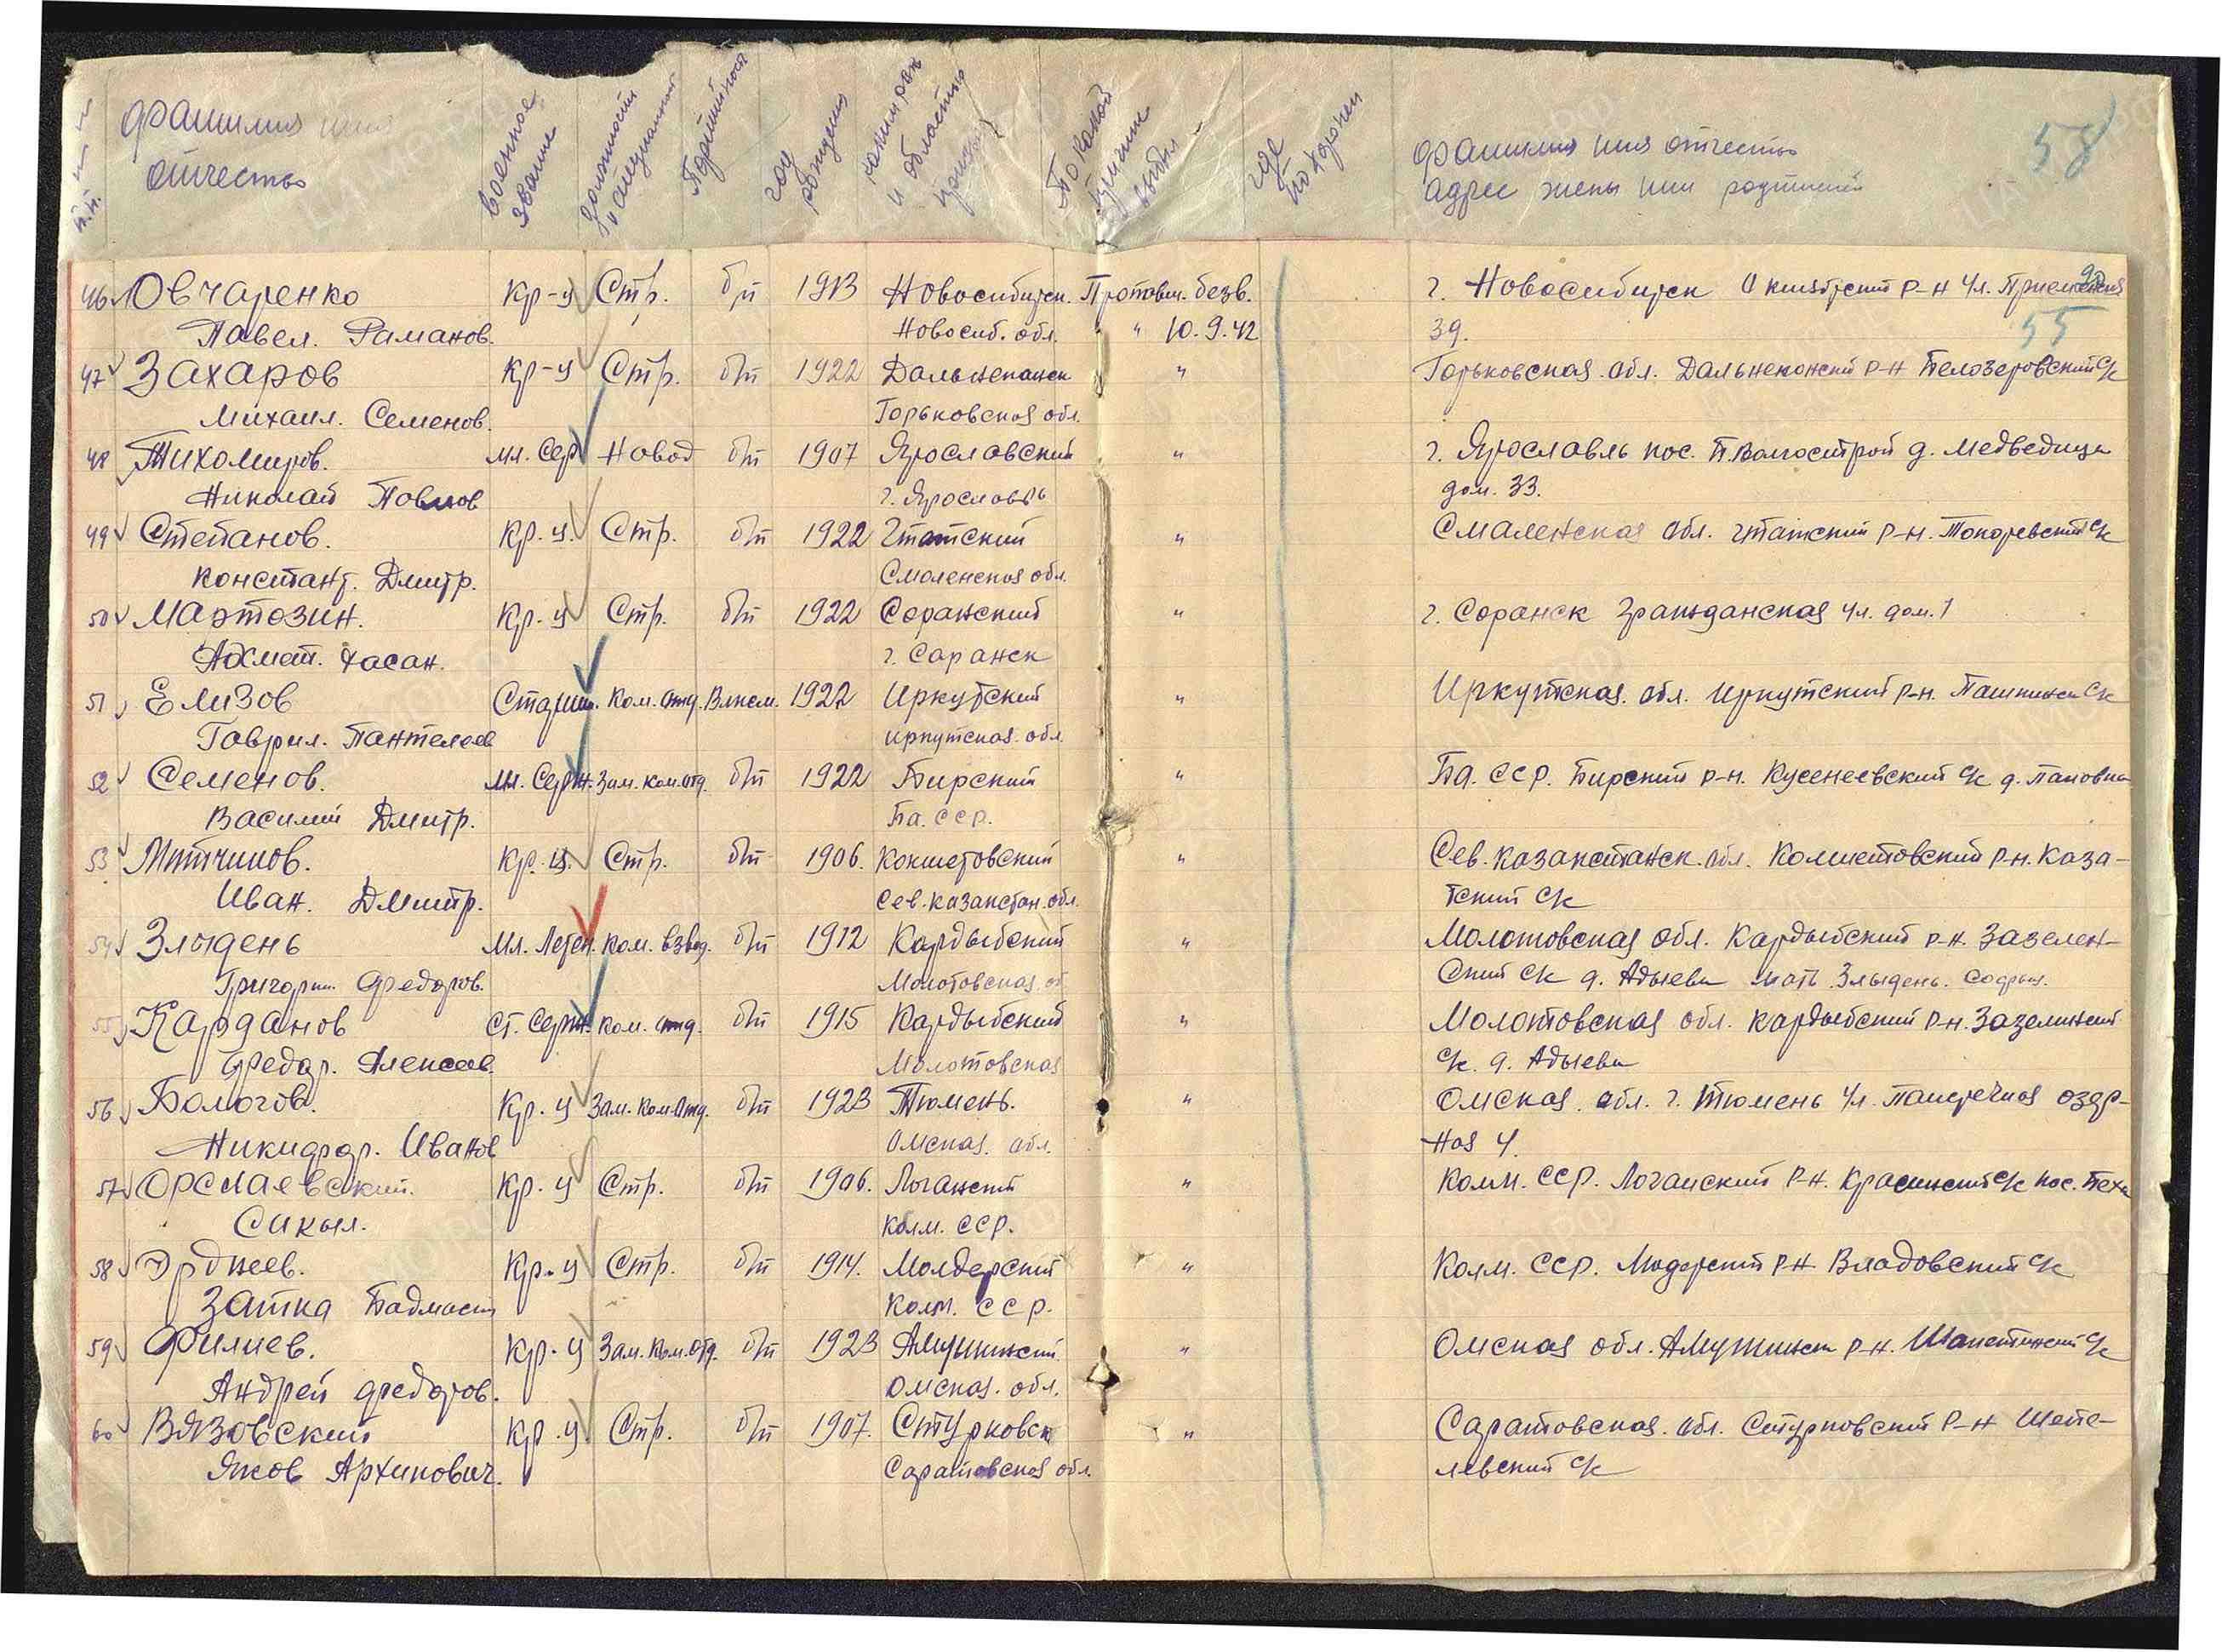 №№ п.п.
фамилия имя
отчество
военное звание
должность и специальность
Партийность
год рождения
каким рвк и областью призван
По какой причине выбыл
где похоронен
фамилия имя отчество
адрес жены или родителей
58
55
46 Овчаренко Кр-ц Стр. б/п 1913 Новосибирск. Пропавш. безв. г. Новосибирск Октябрский р-н ул.
Павел. Раманов. Новосиб. обл. " " 10.9.42 39.
47 Захаров Кр-ц Стр. б/п 1922 Дальнеканск " Горьковская обл. Дальнеконский р-н Белозеровский с/с
Михаил. Семенов. Горьковская обл.
48 Тихомиров. мл. Сер б/п 1907 Ярославский " г. Ярославль пос. д. Медведица
Николай Павлов г. Ярославль дом. 33.
49 Степанов. Кр.ц. Стр. б/п 1922 Гжатский " Смаленская обл. гжатский р-н. Токаревский с/с
Констант. Дмитр. Смоленская обл.
50 Мартозин. Кр.ц Стр. б/п 1922 Соранский " г. Соранск Гражданская ул. дом. 1
Ахмет. Хасан. г. Саранск
51 Елизов Старш. Ком. отд. Влксм. 1922 Иркутский " Иркутская. обл. иркутский р-н. с/с
Гаврил. Пантелеев иркутская. обл.
52 Семенов. Мл. Серж. Зам. ком. отд. б/п 1922 Бирский " Ба. сср. Бирский р-н. Кусенеевский с/с д.
Василий Дмитр. Ба. сср.
53 Кр.ц. Стр. б/п 1906. Кокшетовский " Сев. казакстанск. обл. Кокшетовский р-н. Каза-
Иван. Дмитр. Сев. казакстан. обл. ский с/с
54 Злыдень Мл. Лейтен. ком. взвод. б/п 1912 Кардыбский " Молотовская обл. Кардыбский р-н. Зазелен-
Григории. Федоров. Молотовская. об ский с/с д. Адыева мать Злыдень. Софья.
55 Карданов Ст. Серж. ком. отд. б/п 1915 Кардыбский " Молотовская обл. кардыбский р-н. Зазелинский
Федор. Алексеев. Молотовская с/с. д. Адыева
56 Бологов. Кр.ц Зам. Ком. Отд. б/п 1923 Тюмень. " Омская. обл. г. Тюмень ул.
Никифор. Иванов Омская. обл. ная 4.
57 Орслаевский. Кр.ц Стр. б/п 1906. Логанский " Колм. сср. Логанский р-н. Красинский с/с пос.
Сикыл. Колм. сср.
58 Эрднеев. Кр.ц Стр. б/п 1914. Молдерский " Колм. сср. р-н Владовский с/с
Затка Бадмаев Колм. сср.
59 Филиев. Кр.ц Зам. Ком. Отд. б/п 1923 " Омская обл. р-н. с/с
Андрей федоров. Омская. обл.
60 Вязовский Кр.ц. Стр. б/п 1907. Стурковск " Саратовская. обл. Стурковский р-н Шепе-
Яков Архипович. Саратовская обл. левский с/с